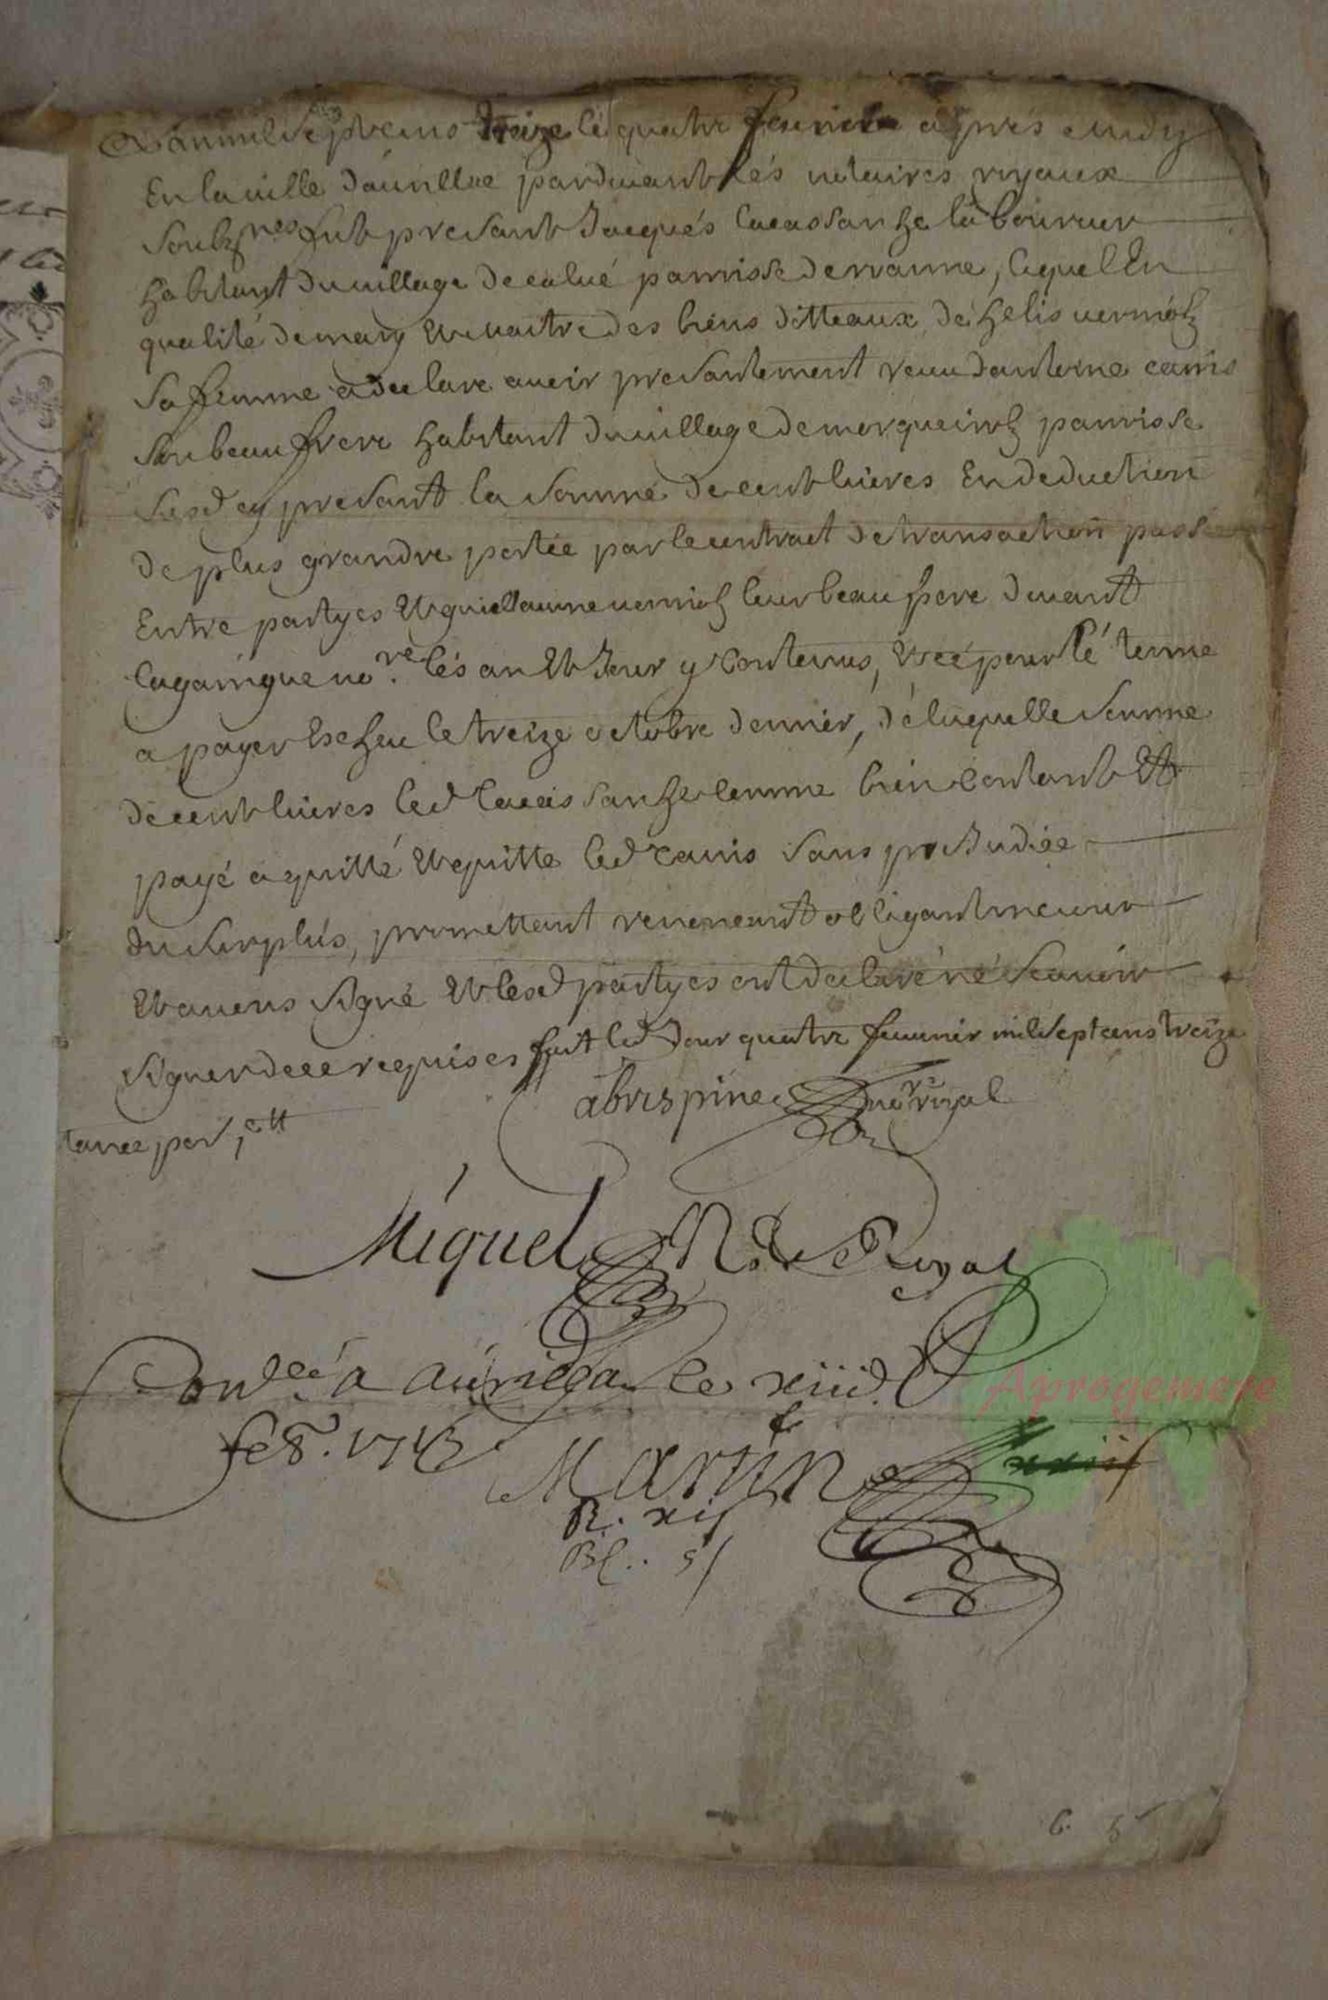 L'an mil sept cens treize le quatre feuvrier apres midy
En la ville d'aurillac pardevant les notaires royaux
soubznes fut presant Jacques Lacassanhe laboureur
habitant du village de calué parroisse de roanne, lequel En
qualité de mary et maitre des biens dotteaux de helis vermioh
sa femme a declare avoir presantement receu d'antoine canis
son beau frere habitant du village de morqueirih parroisse
susd ey presant la somme de cent livres En deduction
de plus grande portée par le contract de transaction passé
Entre partyes et guillaume vermioh leur beau pere devant
Lagarrigue no.re les an et Jour y contenus, et ce pour le terme
a payer Escheu le treize octobre dernier, de laquelle somme
de cent livres led Lacassanhe comme bien contant et
payé a quitté et quitte led canis sans preJudice
du surplus, promettant renoncant obligant
et avons signé et lesd partyes ont declaré ne scavoir
signer de ce requises fait led Jour quatre feuvrier mil sept cens treize
abrespine no.re royal
Miguel N.re Royal
Con.lee a aurillac le xiiid.
feb. 1713
Martin
R. xij s
Aprogemere